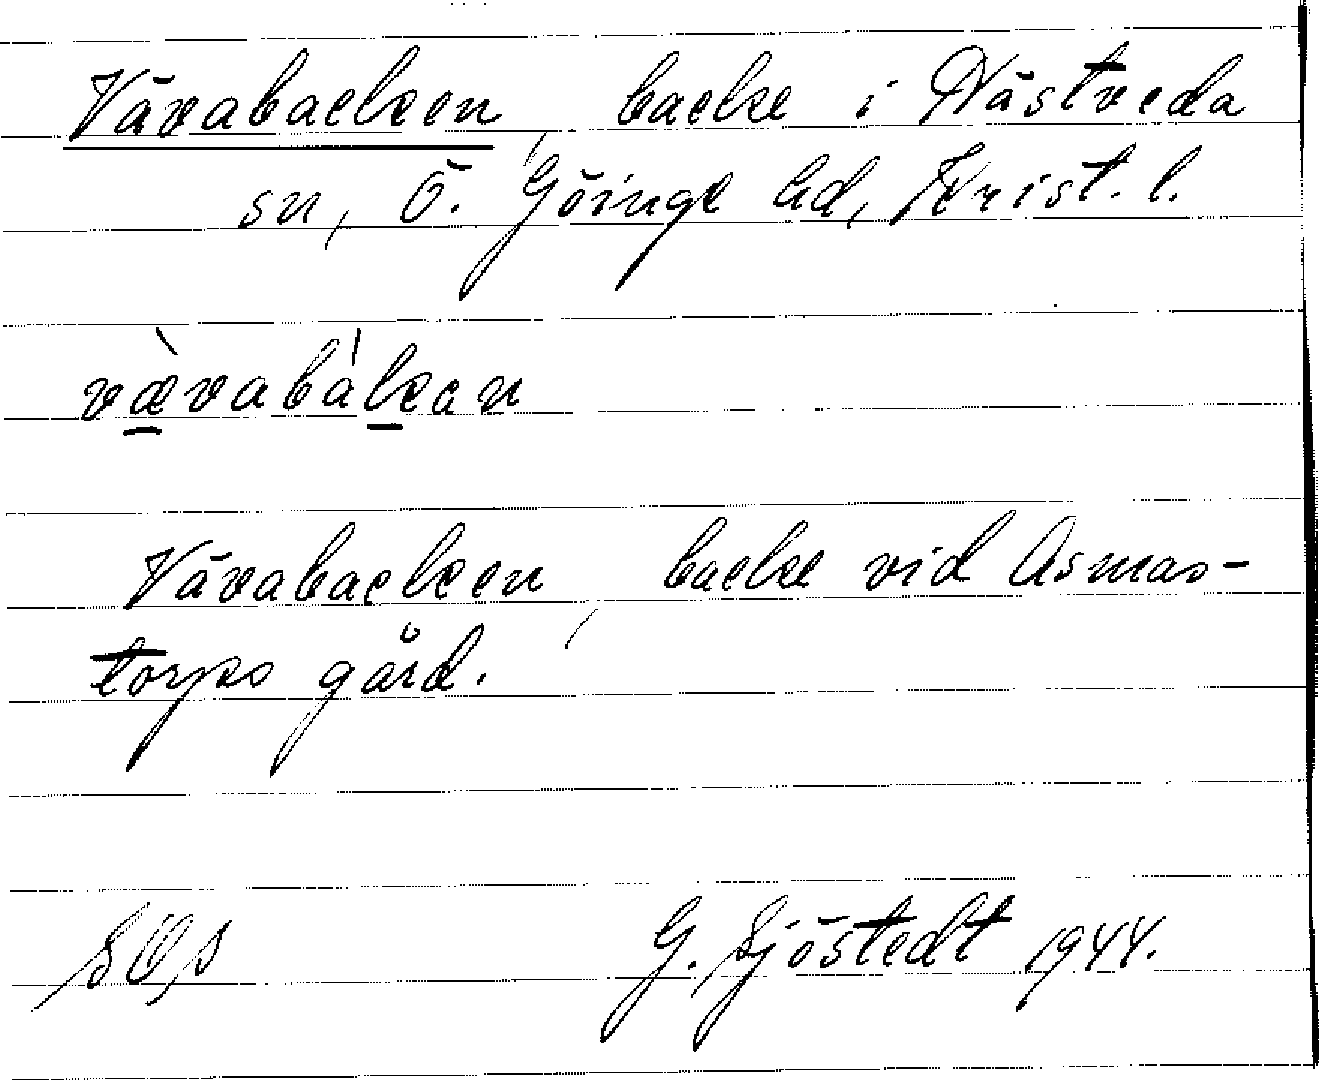 Vävabacken, backe i Nästveda
sn, Ö. Göinge hd, Krist. l.
vä̀vabákan
Vävabacken, backe vid Asmas-
torps gård.
G. Sjöstedt 1944.